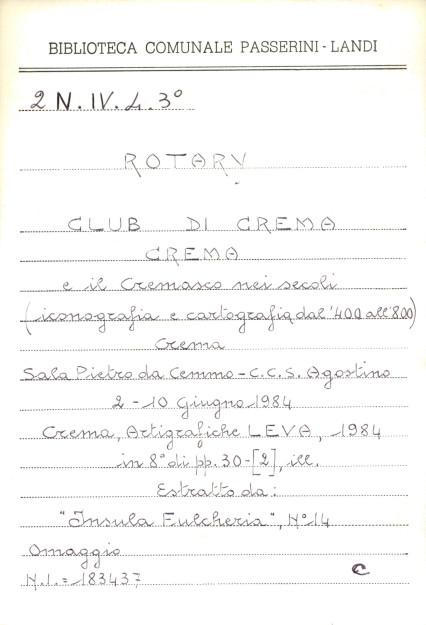 BIBLIOTECA COMUNALE PASSERINI - LANDI
2 N. IV. 4. 3°
ROTARY
CLUB DI CREMA
CREMA
e il Cremasco nei secoli
(iconografia e cartografia dal '400 all' 800)
Crema
Sala Pietro da Cemmo - C.C.S. Agostino
2 - 10 Giugno 1984
Crema, Artigrafiche LEVA, 1984
in 8° di pp. 30-[2], ill.
Estratto da:
"Insula Fulcheria", N° 14
Omaggio
N.I. = 183437
C